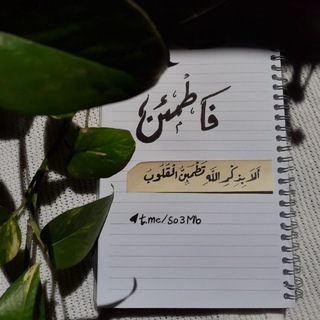 فَاطْمَئِن
أَلَا بِذِكْرِ اللَّهِ تَطْمَئِنُّ الْقُلُوبُ
t.me/so3Mb